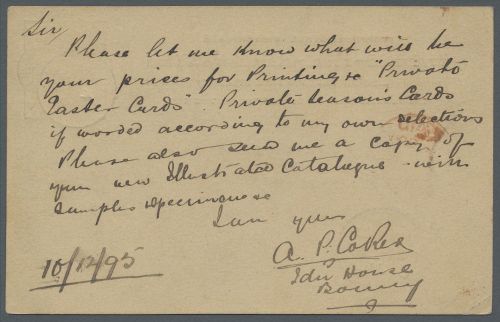 Sir,
Please let me know what will be
your prices for Printing &c "Private
Easter Cards". Private Seasons Cards
if worded according to my own selections
Please also send me a copy of
your new Illustrated Catalogue with
samples specimens &c
I am yours
A. P. Coker
Idu House
Bonny
10/12/95